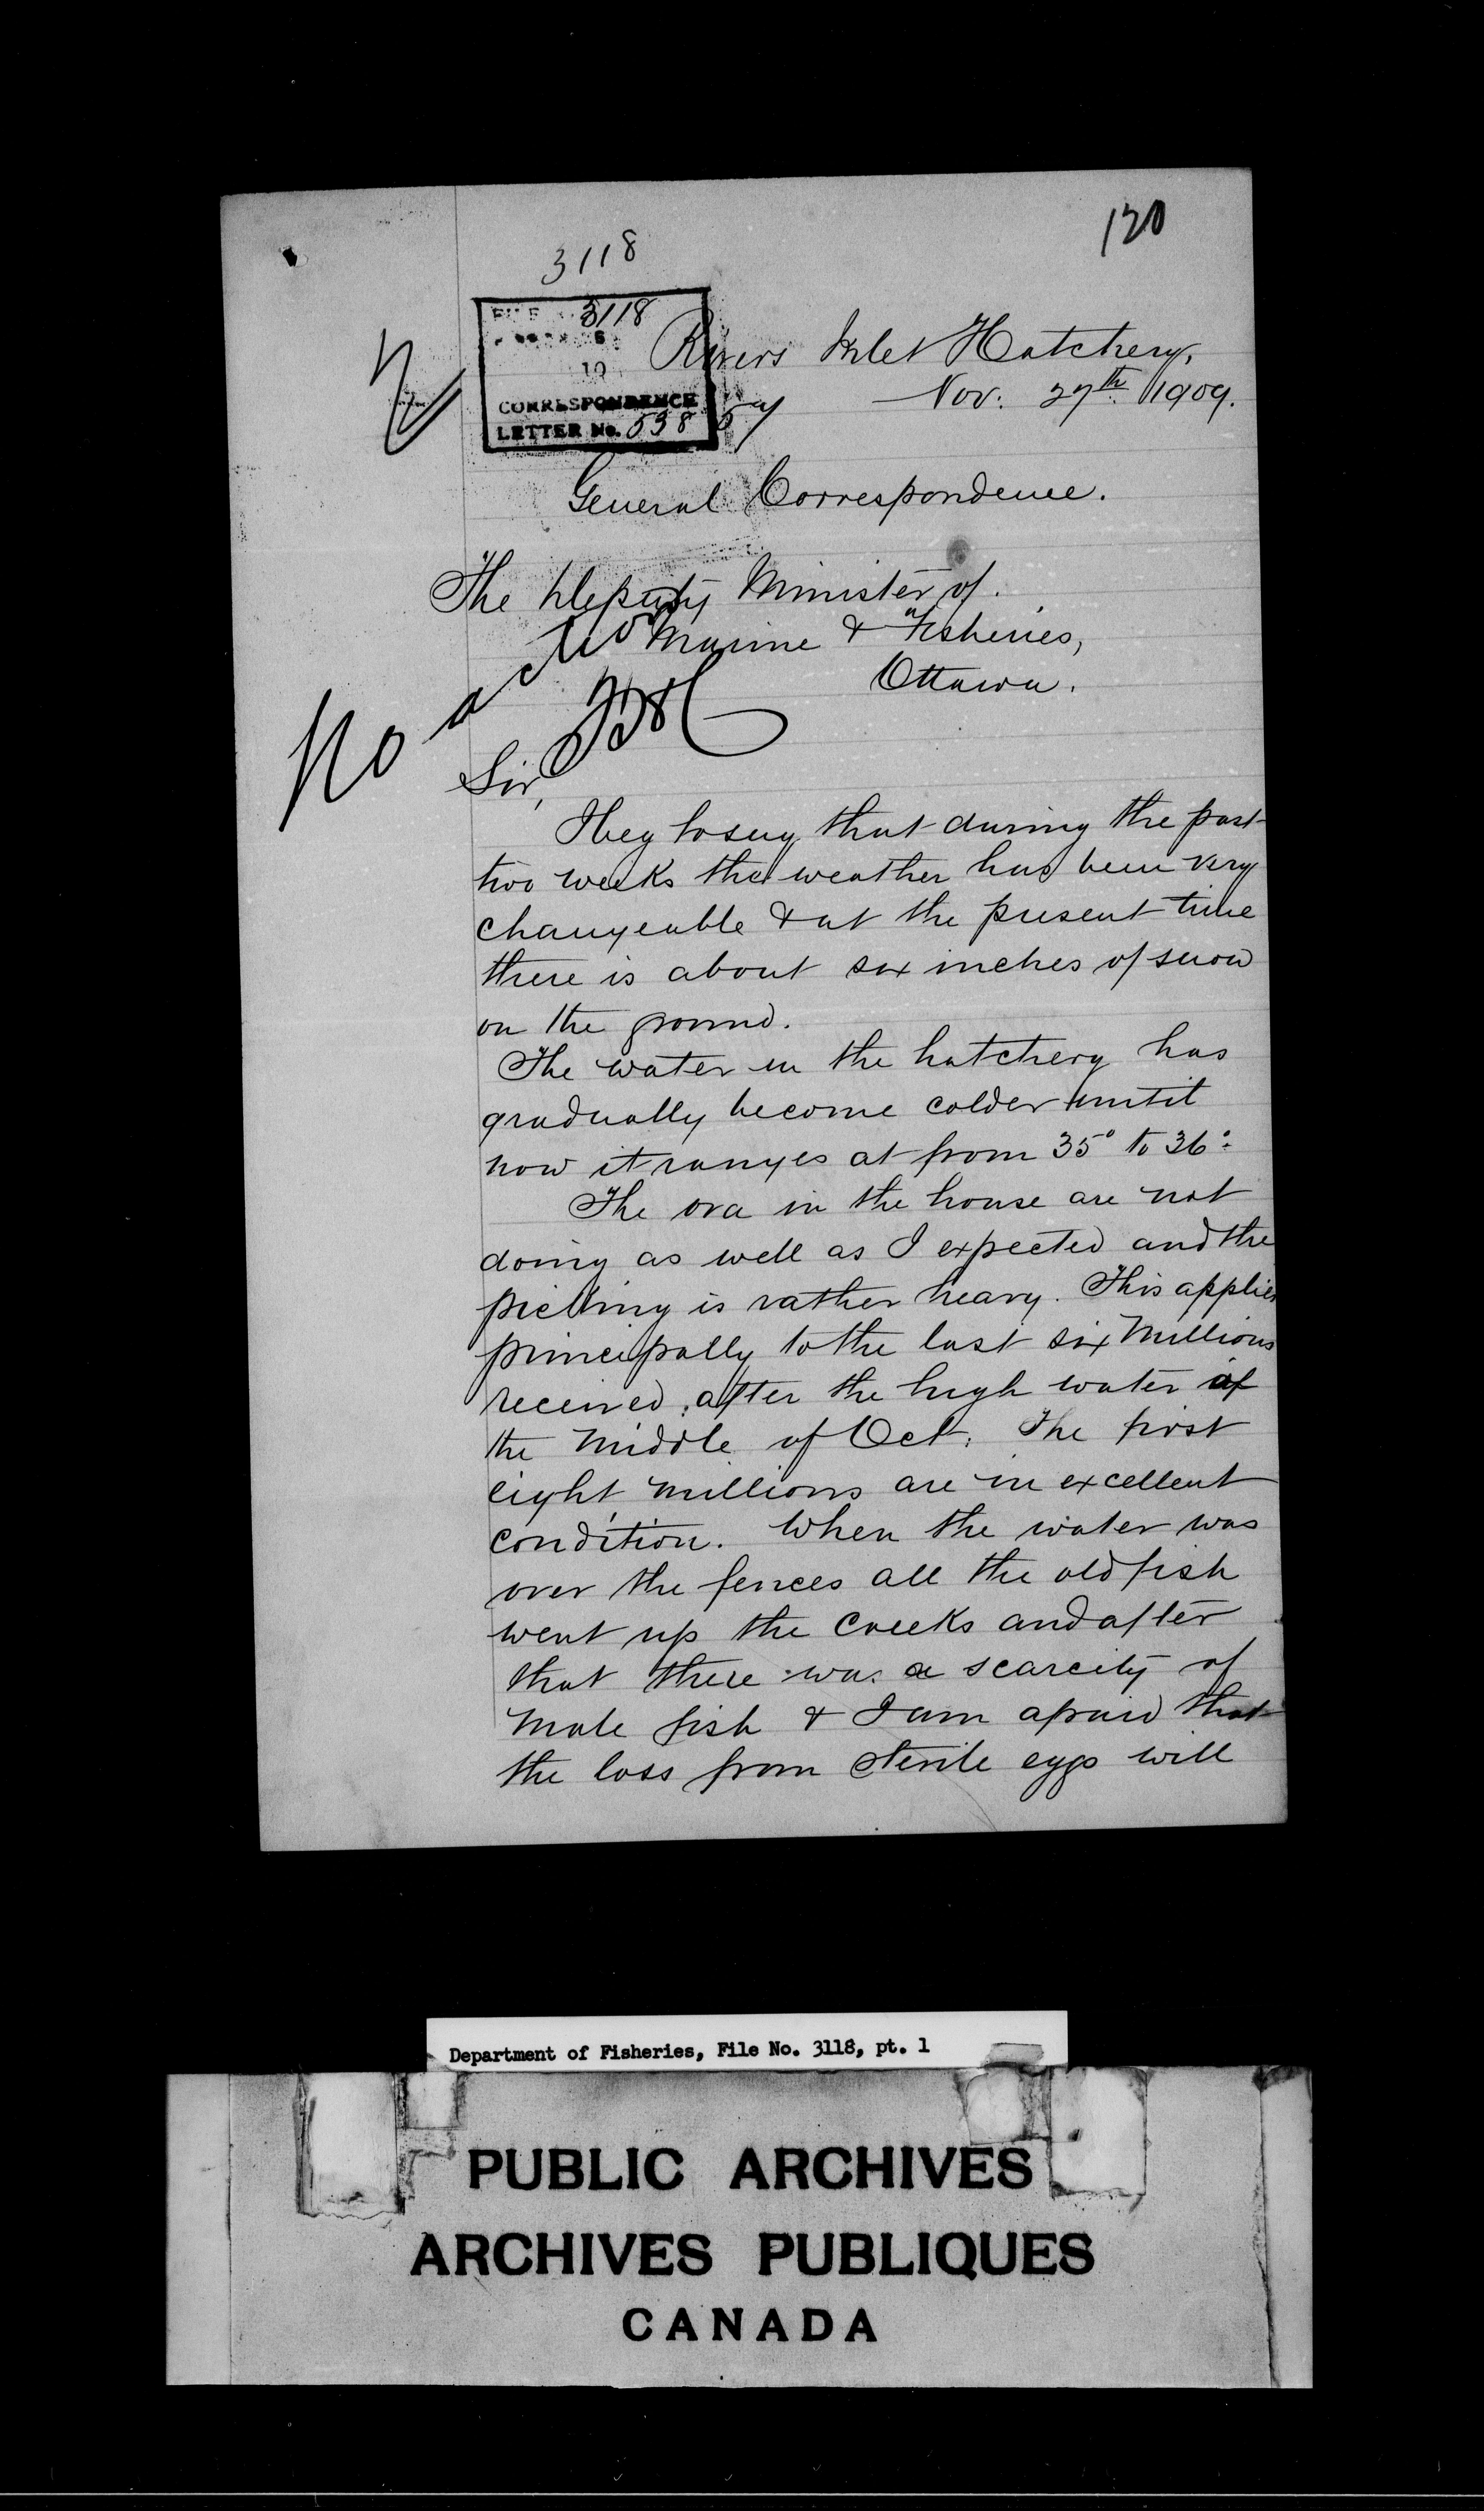 120
3118
FILE 3118
19
CORRESPONDENCE
LETTER No. 538
Rivers Inlet Hatchery,
Nov. 27th 1909.
General Correspondence.
The Deputy Minister of
Marine & Fisheries,
Ottawa.
No action
Sir,
I beg to say that during the past
two weeks the weather has been very
changeable & at the present time
there is about six inches of snow
on the ground.
The water in the hatchery has
gradually become colder until
now it ranges at from 35° to 36°.
The ova in the house are not
doing as well as I expected and the
picking is rather heavy. This applies
principally to the last six millions
received after the high water of
the middle of Oct. The first
eight millions are in excellent
condition. When the water was
over the fences all the old fish
went up the creeks and after
that there was a scarcity of
male fish & I am afraid that
the loss from sterile eggs will
Department of Fisheries, File No. 3118, pt. 1
PUBLIC ARCHIVES
ARCHIVES PUBLIQUES
CANADA